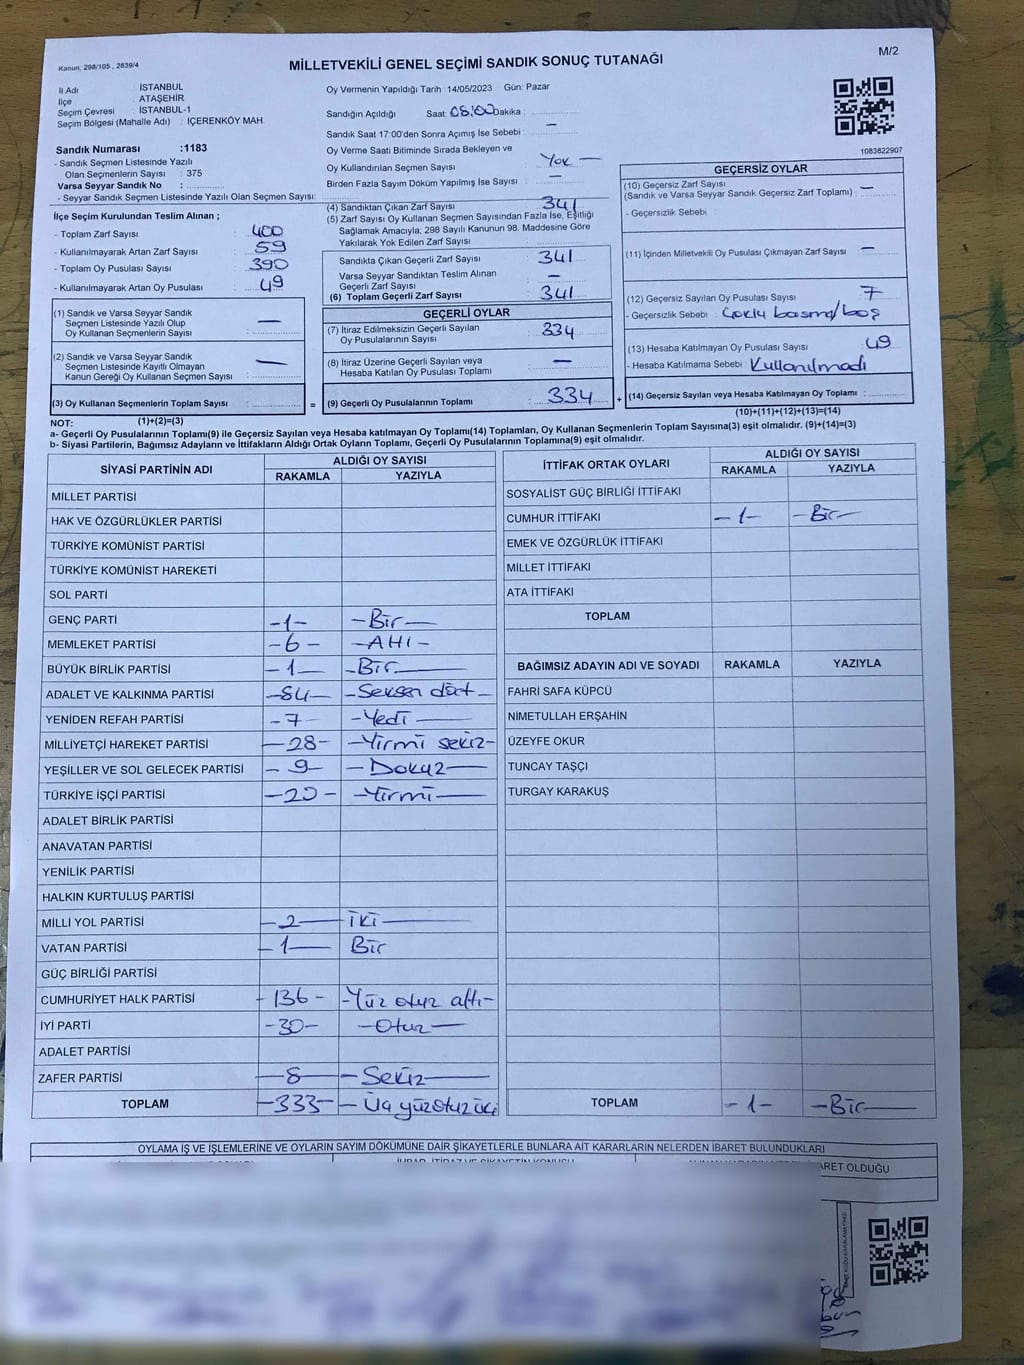 Kanun: 298/105 , 2839/4
MİLLETVEKİLİ GENEL SEÇİMİ SANDIK SONUÇ TUTANAĞI
M/2
İl Adı : İSTANBUL
İlçe : ATAŞEHİR
Seçim Çevresi : İSTANBUL-1
Seçim Bölgesi (Mahalle Adı) : İÇERENKÖY MAH
Sandık Numarası :1183
- Sandık Seçmen Listesinde Yazılı
Olan Seçmenlerin Sayısı : 375
Varsa Seyyar Sandık No :
- Seyyar Sandık Seçmen Listesinde Yazılı Olan Seçmen Sayısı:
İlçe Seçim Kurulundan Teslim Alınan ;
- Toplam Zarf Sayısı : 400
- Kullanılmayarak Artan Zarf Sayısı : 59
- Toplam Oy Pusulası Sayısı : 390
- Kullanılmayarak Artan Oy Pusulası : 49
(1) Sandık ve Varsa Seyyar Sandık
Seçmen Listesinde Yazılı Olup
Oy Kullanan Seçmenlerin Sayısı : —
(2) Sandık ve Varsa Seyyar Sandık
Seçmen Listesinde Kayıtlı Olmayan
Kanun Gereği Oy Kullanan Seçmen Sayısı : —
(3) Oy Kullanan Seçmenlerin Toplam Sayısı :
Oy Vermenin Yapıldığı Tarih :14/05/2023 Gün: Pazar
Sandığın Açıldığı Saat: 08:00 Dakika :
Sandık Saat 17:00'den Sonra Açımış İse Sebebi : —
Oy Verme Saati Bitiminde Sırada Bekleyen ve
Oy Kullandırılan Seçmen Sayısı : Yok —
Birden Fazla Sayım Döküm Yapılmış İse Sayısı : —
(4) Sandıktan Çıkan Zarf Sayısı : 341
(5) Zarf Sayısı Oy Kullanan Seçmen Sayısından Fazla İse, Eşitliği
Sağlamak Amacıyla; 298 Sayılı Kanunun 98. Maddesine Göre
Yakılarak Yok Edilen Zarf Sayısı :
Sandıkta Çıkan Geçerli Zarf Sayısı : 341
Varsa Seyyar Sandıktan Teslim Alınan
Geçerli Zarf Sayısı : —
(6) Toplam Geçerli Zarf Sayısı : 341
GEÇERLİ OYLAR
(7) İtiraz Edilmeksizin Geçerli Sayılan
Oy Pusulalarının Sayısı : 334
(8) İtiraz Üzerine Geçerli Sayılan veya
Hesaba Katılan Oy Pusulası Toplamı : —
= (9) Geçerli Oy Pusulalarının Toplamı : 334 +
1083822907
GEÇERSİZ OYLAR
(10) Geçersiz Zarf Sayısı
(Sandık ve Varsa Seyyar Sandık Geçersiz Zarf Toplamı) : —
- Geçersizlik Sebebi :
(11) İçinden Milletvekili Oy Pusulası Çıkmayan Zarf Sayısı : —
(12) Geçersiz Sayılan Oy Pusulası Sayısı : 7
- Geçersizlik Sebebi : Çoklu basma/boş
(13) Hesaba Katılmayan Oy Pusulası Sayısı : 49
- Hesaba Katılmama Sebebi : Kullanılmadı
(14) Geçersiz Sayılan veya Hesaba Katılmayan Oy Toplamı :
NOT: (1)+(2)=(3)
(10)+(11)+(12)+(13)=(14)
a- Geçerli Oy Pusulalarının Toplamı(9) ile Geçersiz Sayılan veya Hesaba katılmayan Oy Toplamı(14) Toplamları, Oy Kullanan Seçmenlerin Toplam Sayısına(3) eşit olmalıdır. (9)+(14)=(3)
b- Siyasi Partilerin, Bağımsız Adayların ve İttifakların Aldığı Ortak Oyların Toplamı, Geçerli Oy Pusulalarının Toplamına(9) eşit olmalıdır.
SİYASİ PARTİNİN ADI
ALDIĞI OY SAYISI
RAKAMLA YAZIYLA
MİLLET PARTİSİ
HAK VE ÖZGÜRLÜKLER PARTİSİ
TÜRKİYE KOMÜNİST PARTİSİ
TÜRKİYE KOMÜNİST HAREKETİ
SOL PARTİ
GENÇ PARTİ -1- -Bir-
MEMLEKET PARTİSİ -6- -AHI-
BÜYÜK BİRLİK PARTİSİ -1- -Bir-
ADALET VE KALKINMA PARTİSİ -84- -Seksen dört-
YENİDEN REFAH PARTİSİ -7- -Yedi-
MİLLİYETÇİ HAREKET PARTİSİ -28- -Yirmi sekiz-
YEŞİLLER VE SOL GELECEK PARTİSİ -9- -Dokuz-
TÜRKİYE İŞÇİ PARTİSİ -20- -Yirmi-
ADALET BİRLİK PARTİSİ
ANAVATAN PARTİSİ
YENİLİK PARTİSİ
HALKIN KURTULUŞ PARTİSİ
MİLLİ YOL PARTİSİ -2- İki-
VATAN PARTİSİ -1- Bir
GÜÇ BİRLİĞİ PARTİSİ
CUMHURİYET HALK PARTİSİ -136- -Yüz otuz altı-
İYİ PARTİ -30- -Otuz-
ADALET PARTİSİ
ZAFER PARTİSİ -8- -Sekiz-
TOPLAM -333- -Üç yüz otuz üç
İTTİFAK ORTAK OYLARI
ALDIĞI OY SAYISI
RAKAMLA YAZIYLA
SOSYALIST GÜÇ BİRLİĞİ İTTİFAKI
CUMHUR İTTİFAKI -1- -Bir-
EMEK VE ÖZGÜRLÜK İTTİFAKI
MİLLET İTTİFAKI
ATA İTTİFAKI
TOPLAM
BAĞIMSIZ ADAYIN ADI VE SOYADI RAKAMLA YAZIYLA
FAHRİ SAFA KÜPCÜ
NİMETULLAH ERŞAHİN
ÜZEYFE OKUR
TUNCAY TAŞÇI
TURGAY KARAKUŞ
TOPLAM -1- -Bir-
OYLAMA İŞ VE İŞLEMLERİNE VE OYLARIN SAYIM DÖKÜMÜNE DAİR ŞİKAYETLERLE BUNLARA AİT KARARLARIN NELERDEN İBARET BULUNDUKLARI
OLDUĞU